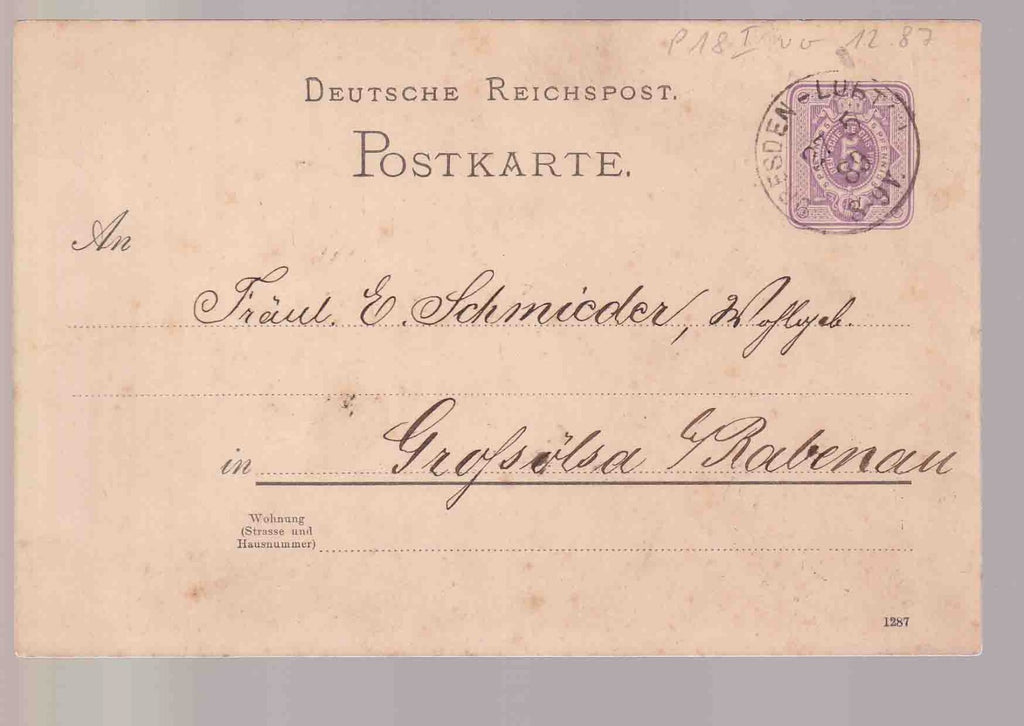 P18 I vv 12.87
DEUTSCHE REICHSPOST.
POSTKARTE.
An
Fräul. E. Schmieder, Wohlgeb.
in Großölsa b/Rabenau
Wohnung
(Strasse und
Hausnummer)
1287